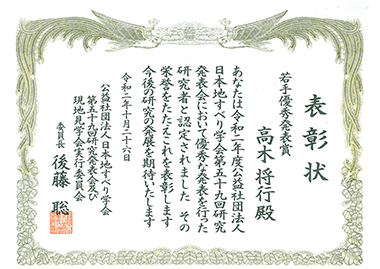 表彰状
若手優秀発表賞
高木将行殿
あなたは令和二年度公益社団法人
日本地すべり学会第五十九回研究
発表会において優秀な発表を行った
研究者と認定されました その
栄誉をたたえこれを表彰します
今後の研究の発展を期待いたします
令和二年十月二十六日
公益社団法人日本地すべり学会
第五十九回研究発表会及び
現地見学会実行委員会
委員長 後藤 聡